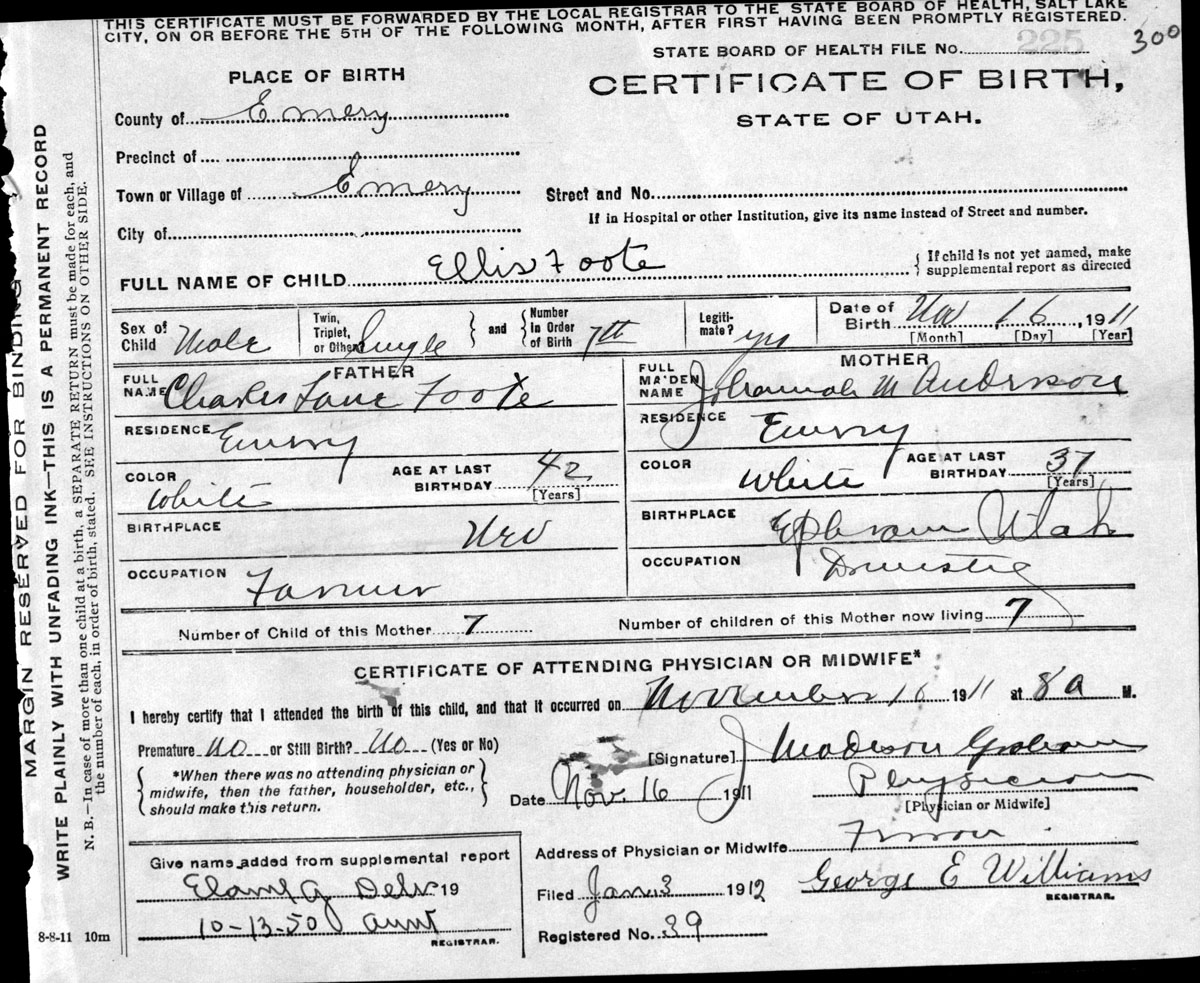 THIS CERTIFICATE MUST BE FORWARDED BY THE LOCAL REGISTRAR TO THE STATE BOARD OF HEALTH, SALT LAKE
CITY, ON OR BEFORE THE 5TH OF THE FOLLOWING MONTH, AFTER FIRST HAVING BEEN PROMPTLY REGISTERED.
STATE BOARD OF HEALTH FILE No. 225 300
PLACE OF BIRTH
CERTIFICATE OF BIRTH,
STATE OF UTAH.
County of Emery
Precinct of
Town or Village of Emery Street and No.
If in Hospital or other Institution, give its name instead of Street and number.
City of
FULL NAME OF CHILD Ellis Foote { If child is not yet named, make
supplemental report as directed
Sex of Child Male Twin, Triplet, or Other Single } and { Number In Order of Birth 7th Legiti-mate? yes Date of Birth Nov 16, 1911
[Month] [Day] [Year]
FATHER MOTHER
FULL NAME Charles Lane Foote FULL MAIDEN NAME Johannah M Anderson
RESIDENCE Emery RESIDENCE Emery
COLOR White AGE AT LAST BIRTHDAY 42 [Years] COLOR White AGE AT LAST BIRTHDAY 37 [Years]
BIRTHPLACE BIRTHPLACE Ephraim Utah
OCCUPATION Farmer OCCUPATION Domestic
Number of Child of this Mother 7 Number of children of this Mother now living 7
CERTIFICATE OF ATTENDING PHYSICIAN OR MIDWIFE*
I hereby certify that I attended the birth of this child, and that it occurred on November 16 1911 at 8 a M.
Premature No or Still Birth? No (Yes or No)
[Signature] J Madison Graham
{ *When there was no attending physician or
midwife, then the father, householder, etc.,
should make this return. }
Date Nov. 16 1911 Physician
[Physician or Midwife]
Address of Physician or Midwife
Give name added from supplemental report
19
10-13-50 aunt
REGISTRAR.
Filed Jan. 3 1912 George E Williams
REGISTRAR.
Registered No. 39
8-8-11 10m
MARGIN RESERVED FOR BINDING
WRITE PLAINLY WITH UNFADING INK—THIS IS A PERMANENT RECORD
N. B.—In case of more than one child at a birth, a SEPARATE RETURN must be made for each, and
the number of each, in order of birth, stated. SEE INSTRUCTIONS ON OTHER SIDE.